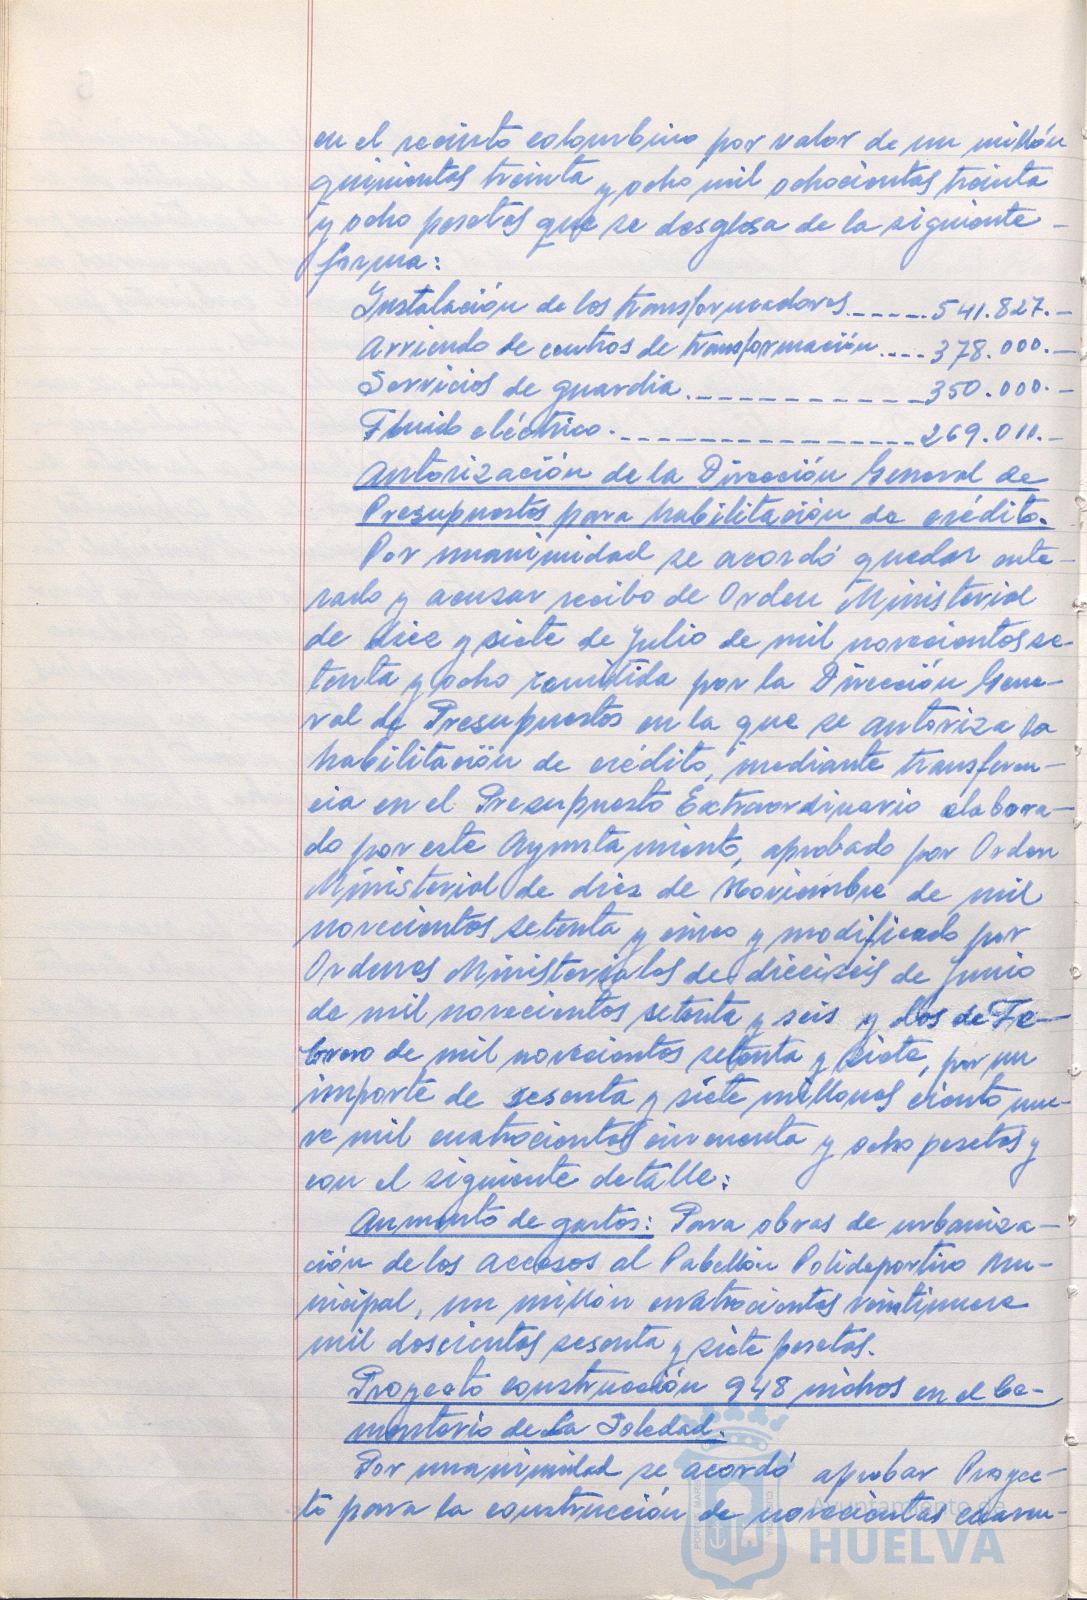 en el recinto colombino por valor de un millón
quinientas treinta y ocho mil ochocientas treinta
y ocho pesetas que se desglosa de la siguiente -
forma:
Instalación de los transformadores.-----541.827.-
Arriendo de centros de transformación....378.000.-
Servicios de guardia.------------350.000.-
Fluido eléctrico.----------------269.011.-
Autorización de la Dirección General de
Presupuestos para habilitación de crédito.
Por unanimidad se acordó quedar ente-
rado y acusar recibo de Orden Ministerial
de diez y siete de Julio de mil novecientos se-
tenta y ocho remitida por la Dirección Gene-
ral de Presupuestos en la que se autoriza la
habilitación de crédito, mediante transferen-
cia en el Presupuesto Extraordinario elabora-
do por este Ayuntamiento, aprobado por Orden
Ministerial de diez de Noviembre de mil
novecientos setenta y cinco y modificado por
Ordenes Ministeriales de dieciseis de Junio
de mil novecientos setenta y seis y dos de Fe-
brero de mil novecientos setenta y siete, por un
importe de sesenta y siete millones ciento nue-
ve mil cuatrocientas cincuenta y ocho pesetas y
con el siguiente detalle:
Aumento de gastos: Para obras de urbaniza-
ción de los accesos al Pabellón Polideportivo Mu-
nicipal, un millón cuatrocientas veintinueve
mil doscientas sesenta y siete pesetas.
Proyecto construcción 948 nichos en el Ce-
menterio de La Soledad.
Por unanimidad se acordó aprobar Proyec-
to para la construcción de novecientos cuaren-
Ayuntamiento de
HUELVA